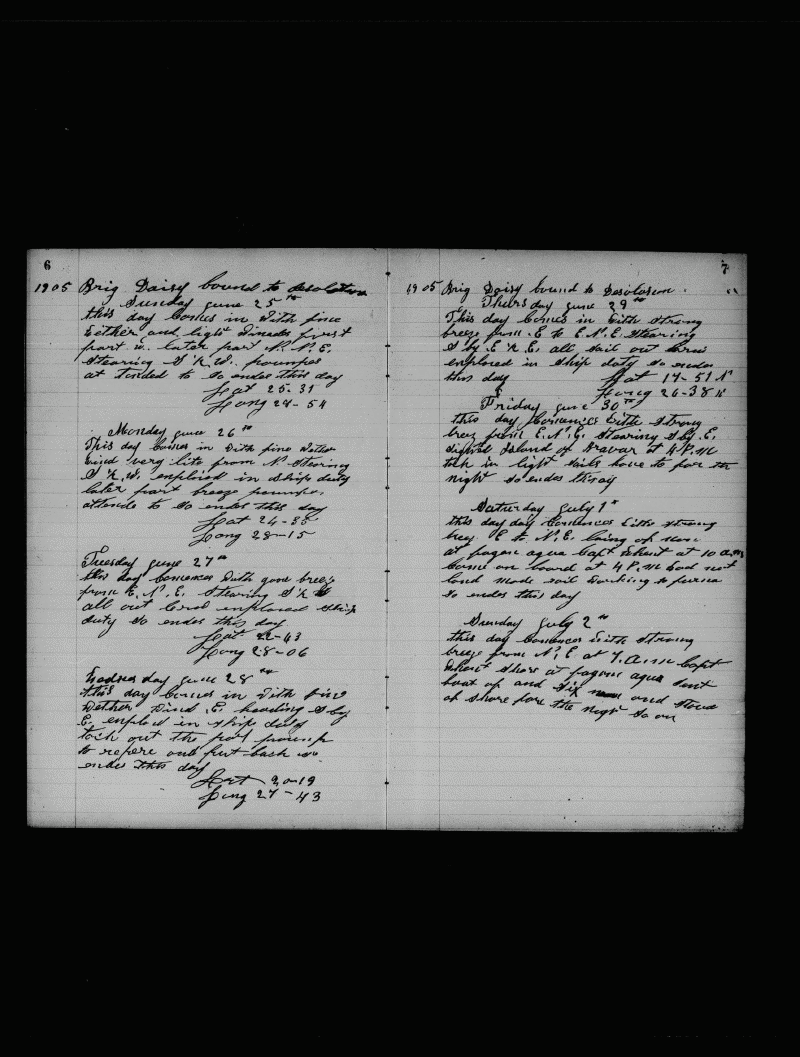 6
1905 Brig Daisy bound to desolation
Sunday june 25th
this day Comes in With fine
Wether and light Winds first
part w. later part N. N. E.
Stearing S by W. poumpes
at tinded to So endes this day
Lat 25-31
Long 28-54
Monday june 26th
This day Comes in With fine Wether
Wind very lite from N. Stearing
S by W. employed in Ship duty
later part breeze poumpes
attende to So endes this day
Lat 24-38
Long 28-15
Tuesday june 27th
this day Comences With good breeze
from E. N. E. Stearing S by
all out employed Ship
duty So endes this day
Lat 22-43
Long 28-06
Wadnesday june 28th
this day Comes in With fine
Wether Wind E. heading S by
E. employed in Ship duty
tock out the port poump
to repere and put back so
endes this day
Lat 20-19
Long 27-43
7
1905 Brig Daisy bound to Desolasion "
Thursday june 29th
This day Comes in With Strong
breeze from E to E. N. E. Stearing
S by E by E. all sail out
employed in Ship duty so endes
this day Lat 17-51 N
Long 26-38
Friday june 30th
this day Comences With Strong
breez from E. N. E. Stearing S by E.
Island of Bravar at 4 P.M
tock in light Sails hove to for the
night so endes this day
Saturday july 1st
this day day Comences With Strong
breez E to N. E. laing of
at fagan agua Capt at 10 am
Come on board at 4 P.M
and made sail Working to
so endes this day
Sunday july 2nd
this day Comences With Strong
breeze from N. E at 7. am Capt
Went Shore at fagone agua Sent
boat of and Six men and Stood
of Shore fore the night So en